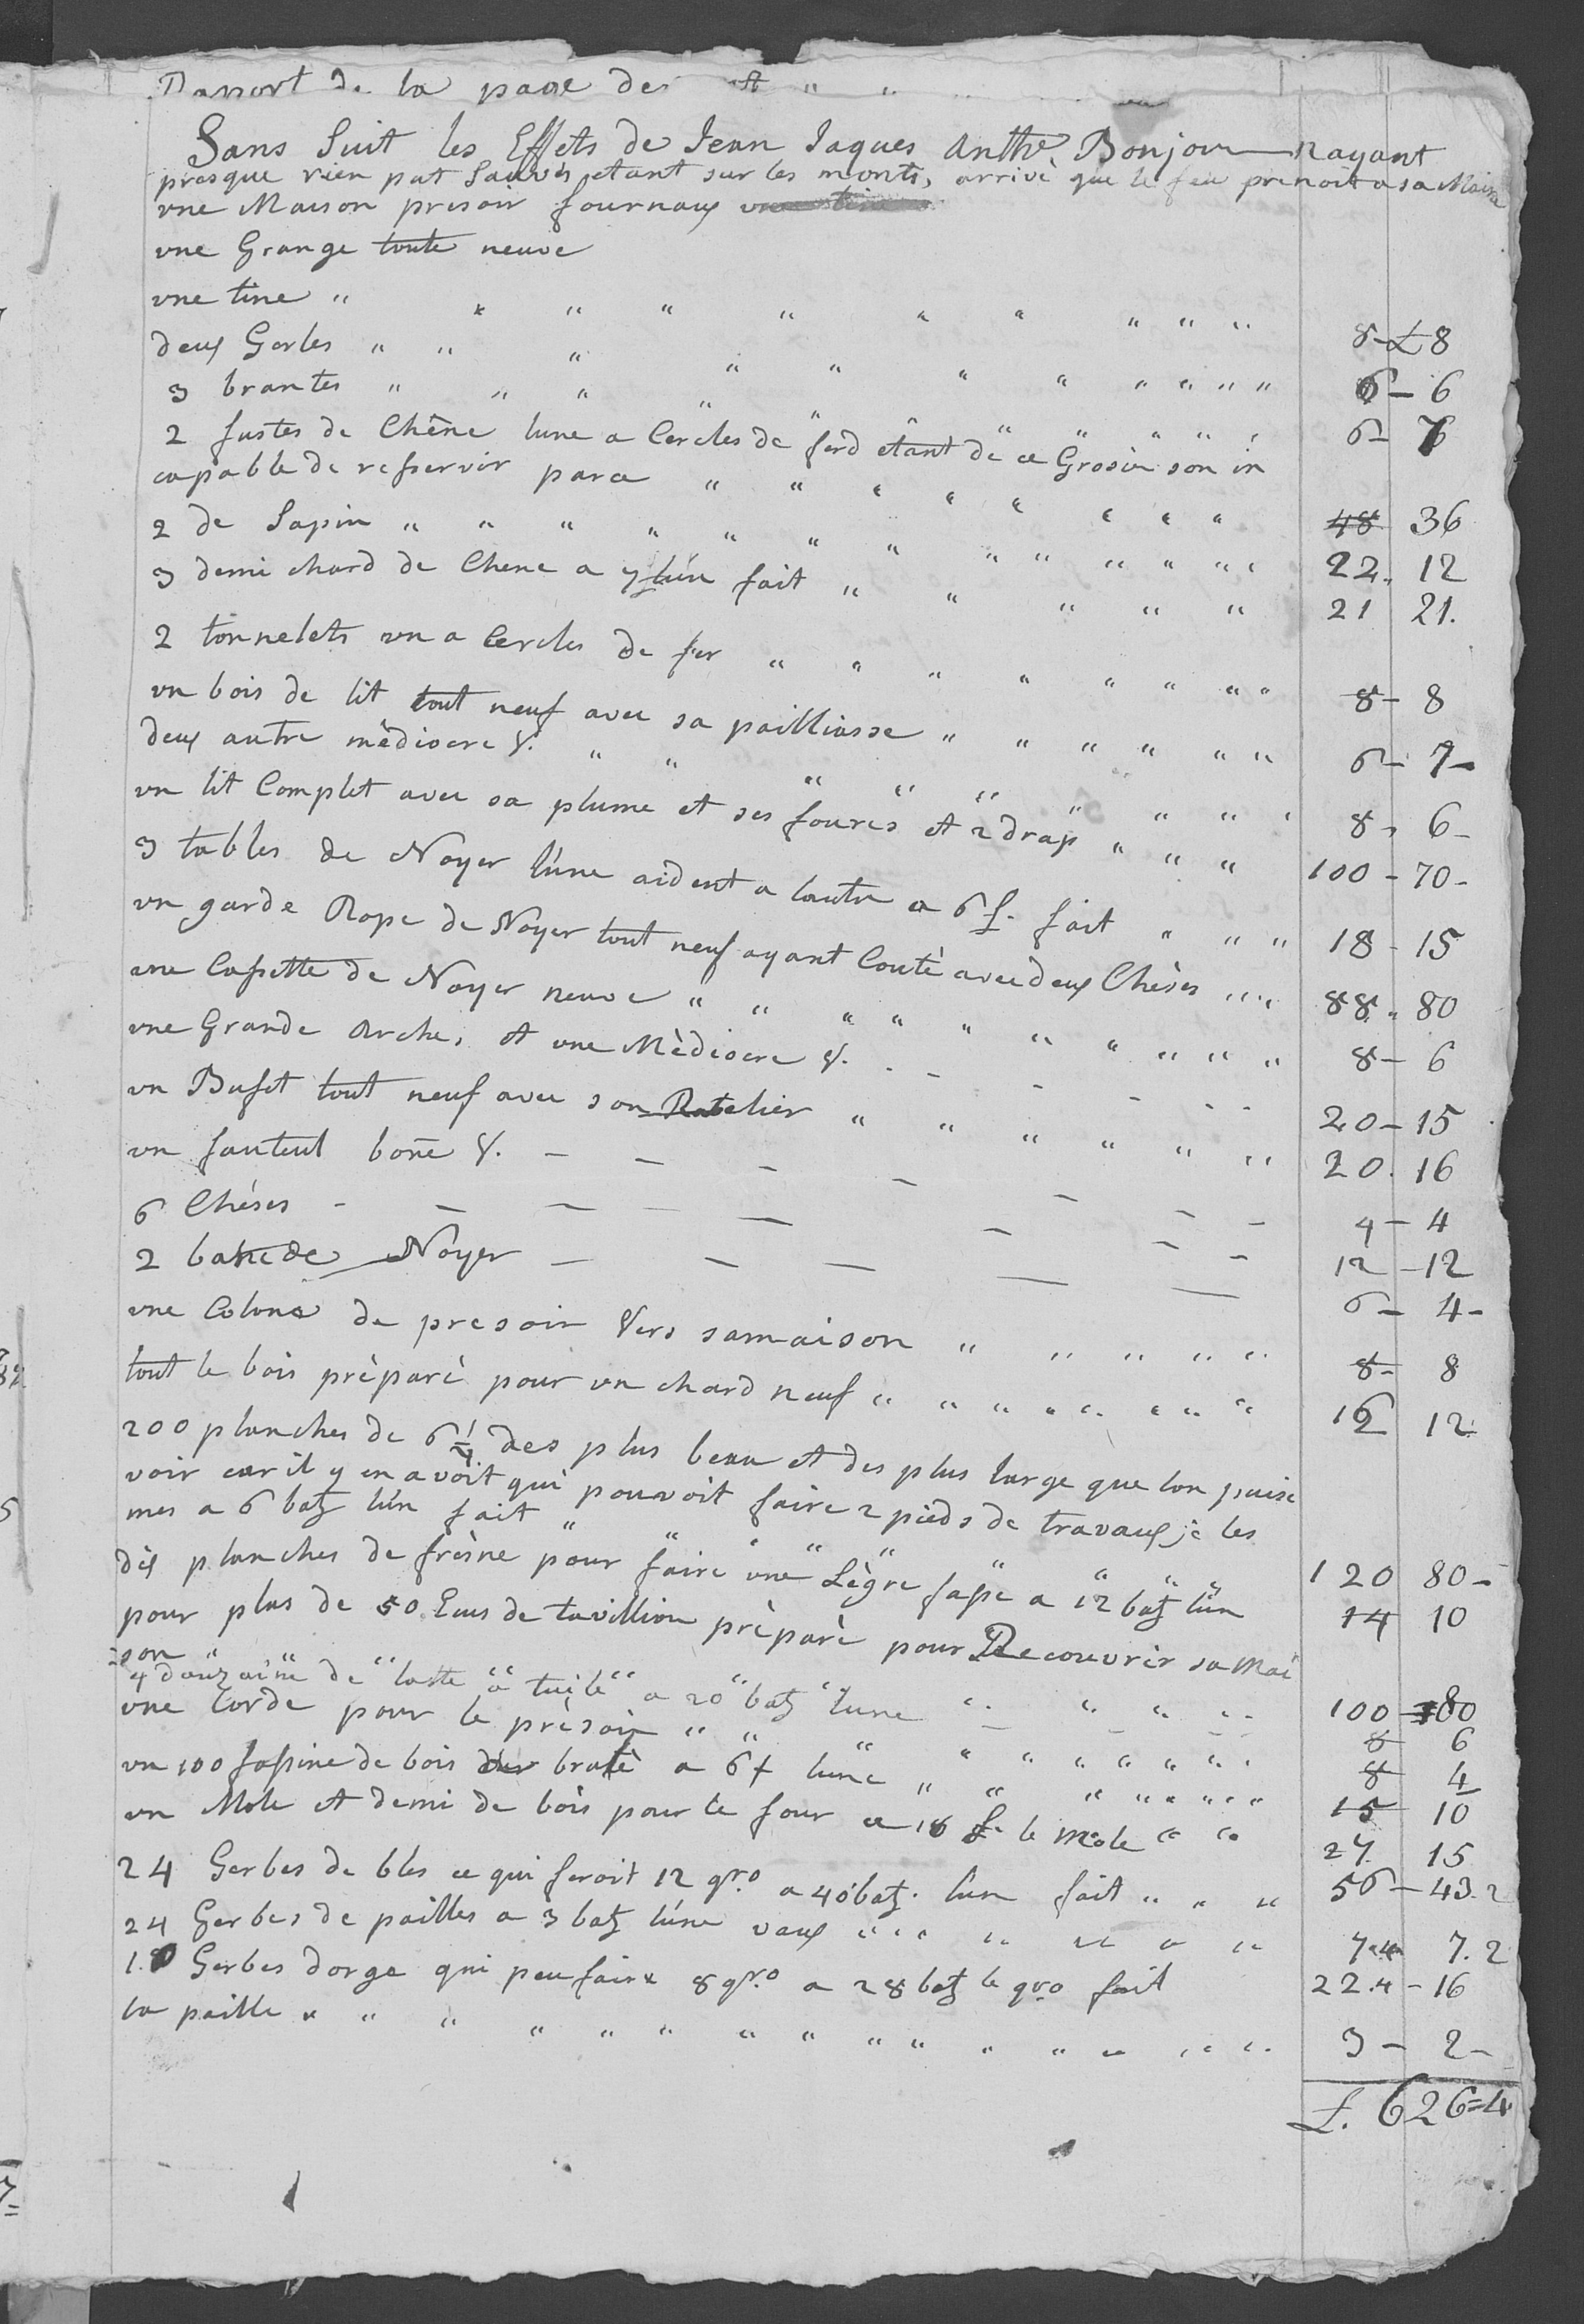 Raport de la page de
Sans Suit les Effets de Jean Jaques Anthe. Bonjour nayant
presque rien put Sauvés etant sur les monts, arrivé que le feu prenoit a sa Maison
une Maison presoir fournaux
une Grange toute neuve
une tine " 8 - £ 8
deux Gerles " 6 - 6
3 brantes " 6 - 6
2 fustes de Chêne lune a Cercles de ferd etant de ce Grosin son in
capable de reservir parce " 48 36
2 de Sapin " 22. 12
3 demi chard de Chene a 7 £ lún fait " 21 21.
2 tonnelets un a Cercles de fer " 8 - 8
un bois de lit tout neuf avec sa pailliasse " 6 - 7 -
deux autre mèdiocre &. " 8 - 6 -
un lit Complet avec sa plume et ses foures et 2 drap " 100 - 70 -
3 tables de Noyer lúne aident a lautre a 6 £. fait " 18 - 15
un garde Rope de Noyer tout neuf ayant Coutè avec deux Chèses " 88. 80
une Cassette de Noyer neuve " 8 - 6
une Grande Arche, et une Mèdiocre &. - 20 - 15
un Bufet tout neuf avec son Ratelier " 20. 16
un fauteul bone &. - 4 - 4
6 Chèses - 12 - 12
2 banc de Noyer - 6 - 4 -
une Colone de presoir Vers samaison " 8 - 8
tout le bois prèparè pour un chard neuf " 16 12
200 planches de 6 1/2 des plus beau et des plus large que lon puise
voir car il y en avoit qui pouvoit faire 2 pieds de travaux je les
mes a 6 batz lún fait " 120 80 -
dix planches de frêne pour faire une Lègre fasse a 12 batz lún 14 10
pour plus de 50 Ecus de tavillion prèparè pour Recouvrir sa mai
son " 100 - 80
4 douzaine de latte a tuile a 20 batz lune 8 6
une Corde pour le prèsoir " 8 4
un 100 fassine de bois a 6 + lune " 15 10
un Mole et demi de bois pour le four a 18 £. le Mole " 27. 15
24 Gerbes de bles ce qui feroit 12 qro. a 40 batz. lun fait " 56 - 43. 2
24 Gerbes de pailles a 3 batz lúne vaux " 7. 4 7. 2
18 Gerbes dorge qui peu faire 8 qro. a 28 batz le qro fait 22. 4 - 16
la paille " 3 - 2 -
£. 626 = 4